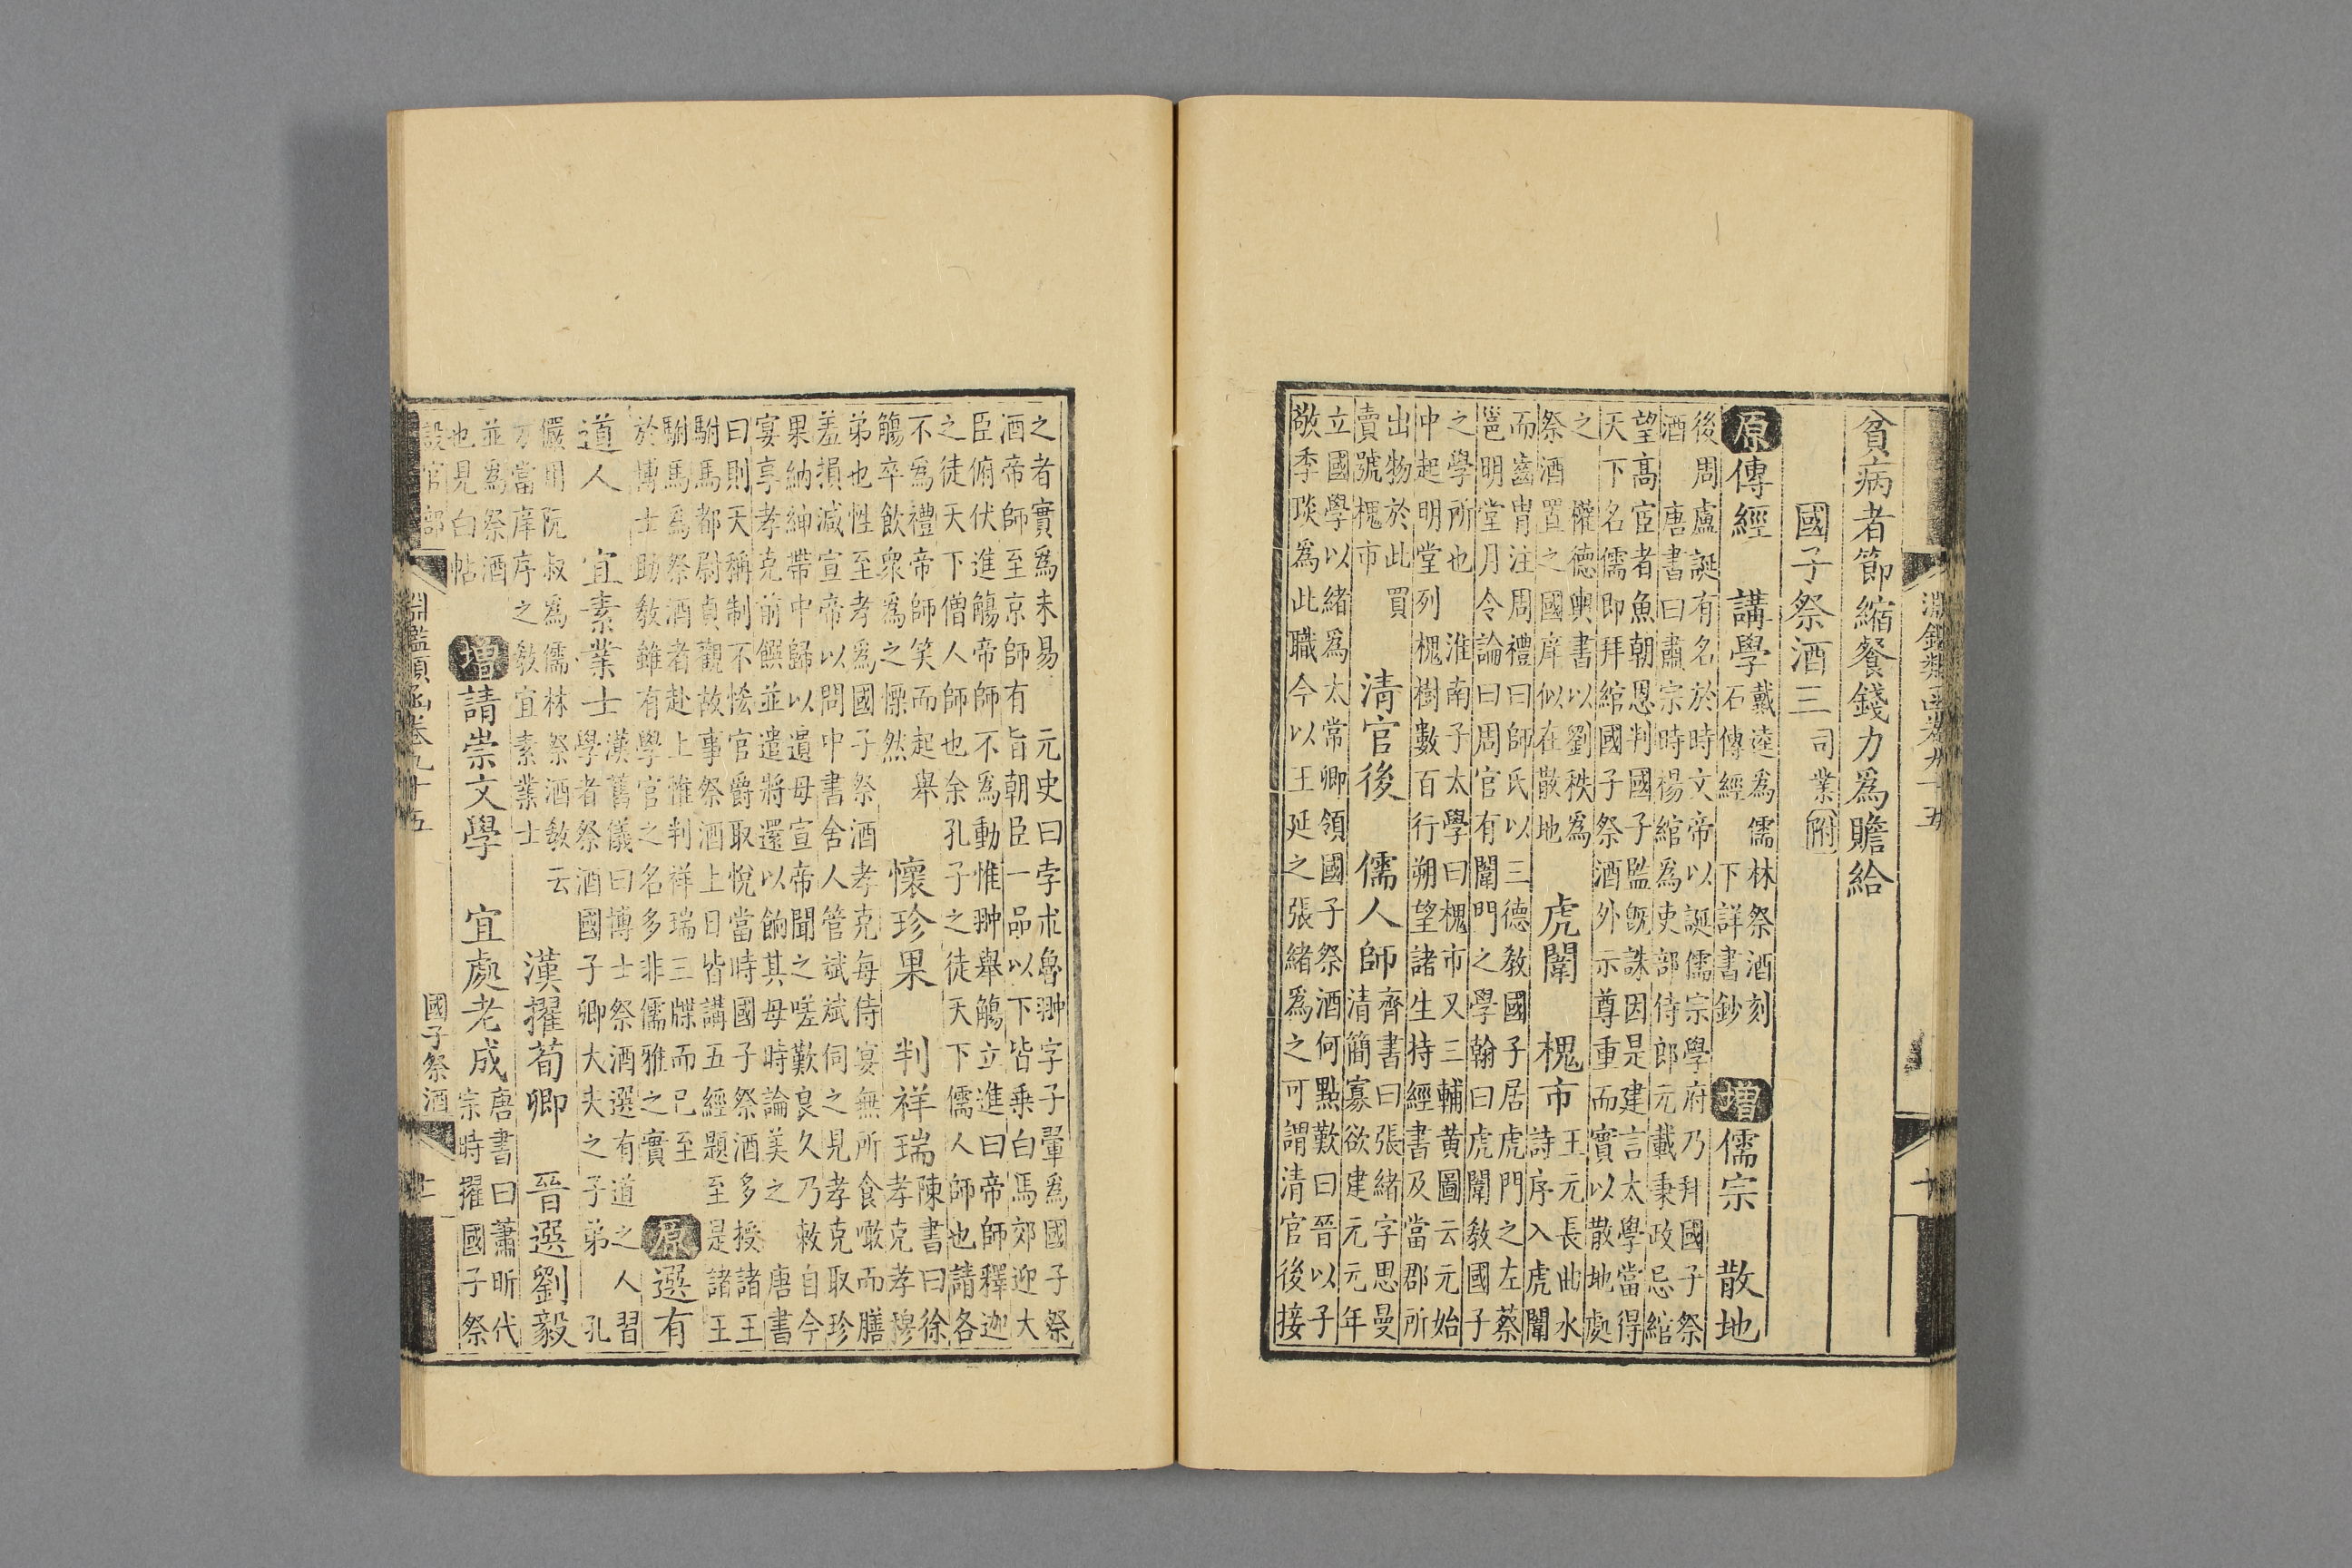 淵鑑類函卷九十五
十
貧病者節縮餐錢力爲贍給
國子祭酒三 司業附
原傳經 講學
戴逵爲儒林祭酒刻
石傳經 下詳書鈔
增儒宗 散地
後周盧誕有名於時文帝以誕儒宗學府乃拜國子祭
酒 唐書曰肅宗時楊綰爲吏部侍郎元載秉政忌綰
望高宦者魚朝恩判國子監旣誅因是建言太學當得
天下名儒即拜綰國子祭酒外示尊重而實以散地處
之 權德輿書以劉秩爲
祭酒置之國庠似在散地
虎闈 槐市
王元長曲水
詩序入虎闈
而齒冑注周禮曰師氏以三德教國子居虎門之左蔡
邕明堂月令論曰周官有闈門之學翰曰虎闈教國子
之學所也 淮南子太學曰槐市又三輔黄圖云元始
中起明堂列槐樹數百行朔望諸生持經書及當郡所
出物於此買
賣號槐市
清官後 儒人師
齊書曰張緒字思曼
清簡寡欲建元元年
立國學以緒爲太常卿領國子祭酒何點歎曰晉以子
敬季琰爲此職今以王延之張緒爲之可謂清官後接
之者實爲未易 元史曰孛朮魯翀字子翬爲國子祭
酒帝師至京師有旨朝臣一品以下皆乗白馬郊迎大
臣俯伏進觴帝師不爲動惟翀舉觴立進曰帝師釋迦
之徒天下僧人師也余孔子之徒天下儒人師也請各
不爲禮帝師笑而起舉
觴卒飲衆爲之慄然
懷珍果 判祥瑞
陳書曰徐
孝克孝穆
弟也性至孝爲國子祭酒孝克每侍宴無所食噉而膳
羞損減宣帝以問中書舍人管斌斌伺之見孝克取珍
果納紳帶中歸以遺母宣帝聞之嗟歎良久乃敕自今
宴享孝克前饌並遣將還以餉其母時論美之 唐書
曰則天稱制不恡官爵取悅當時國子祭酒多授諸王
駙馬都尉貞觀故事祭酒上日皆講五經題至是諸王
駙馬爲祭酒者赴上惟判祥瑞三牒而已至
於博士助教雖有學官之名多非儒雅之實
原選有
道人 宜素業士
漢舊儀曰博士祭酒選有道之人習
學者祭酒國子卿大夫之子弟 孔
儼用阮叔爲儒林祭酒教云
方當庠序之教宜素業士
漢擢荀卿 晉選劉毅
並爲祭酒
也見白帖
增請崇文學 宜處老成
唐書曰蕭昕代
宗時擢國子祭
設官部
淵鑑類函卷九十五
國子祭酒